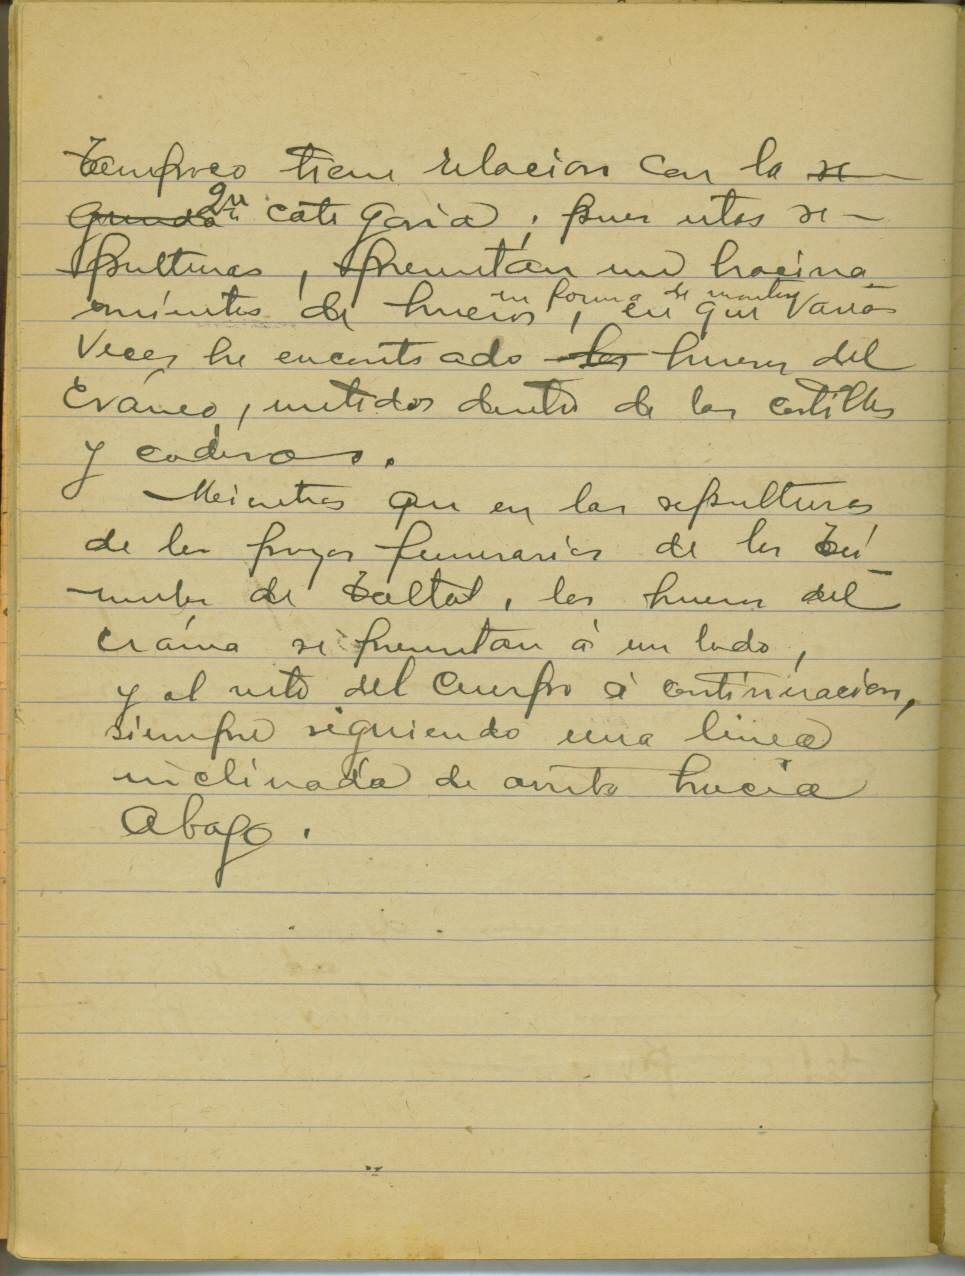 Tampoco tiene relacion con la se-
gunda 2ª categoria, pues estas se-
pulturas, presentan un hacina-
mientos de huesos en forma de monton, en que varias
veces he encontrado los huesos del
Cráneo, metidos dentro de las costillas
y caderas.
Mientras que en las sepulturas
de los pozos funerarios de los
de Taltal, los huesos del
cráneo se presentan á un lado,
y el resto del cuerpo á continuacion,
siempre siguiendo una linea
inclinada de arriba hacia
Abajo.